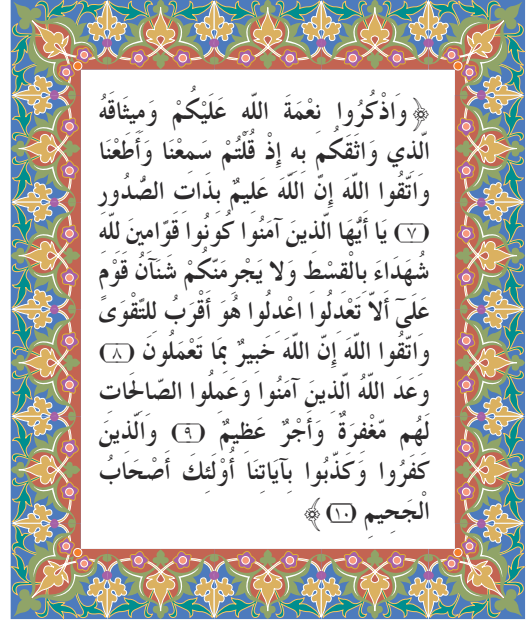 ﴿ وَاذْكُرُوا نِعْمَةَ اللّهِ عَلَيْكُمْ وَمِيثَاقَهُ
الَّذِي وَاثَقَكُم بِهِ إِذْ قُلْتُمْ سَمِعْنَا وَأَطَعْنَا
وَاتَّقُوا اللّهَ إِنَّ اللّهَ عَلِيمٌ بِذَاتِ الصُّدُورِ
(٧) يَا أَيُّهَا الَّذِينَ آمَنُوا كُونُوا قَوَّامِينَ لِلّهِ
شُهَدَاءَ بِالْقِسْطِ وَلا يَجْرِمَنَّكُمْ شَنَآنُ قَوْمٍ
عَلَىٓ أَلاَّ تَعْدِلُوا اعْدِلُوا هُوَ أَقْرَبُ لِلتَّقْوَىٰ
وَاتَّقُوا اللّهَ إِنَّ اللّهَ خَبِيرٌ بِمَا تَعْمَلُونَ (٨)
وَعَدَ اللّهُ الَّذِينَ آمَنُوا وَعَمِلُوا الصَّالِحَاتِ
لَهُم مَّغْفِرَةٌ وَأَجْرٌ عَظِيمٌ (٩) وَالَّذِينَ
كَفَرُوا وَكَذَّبُوا بِآيَاتِنَا أُوْلَئِكَ أَصْحَابُ
الْجَحِيمِ (١٠) ﴾